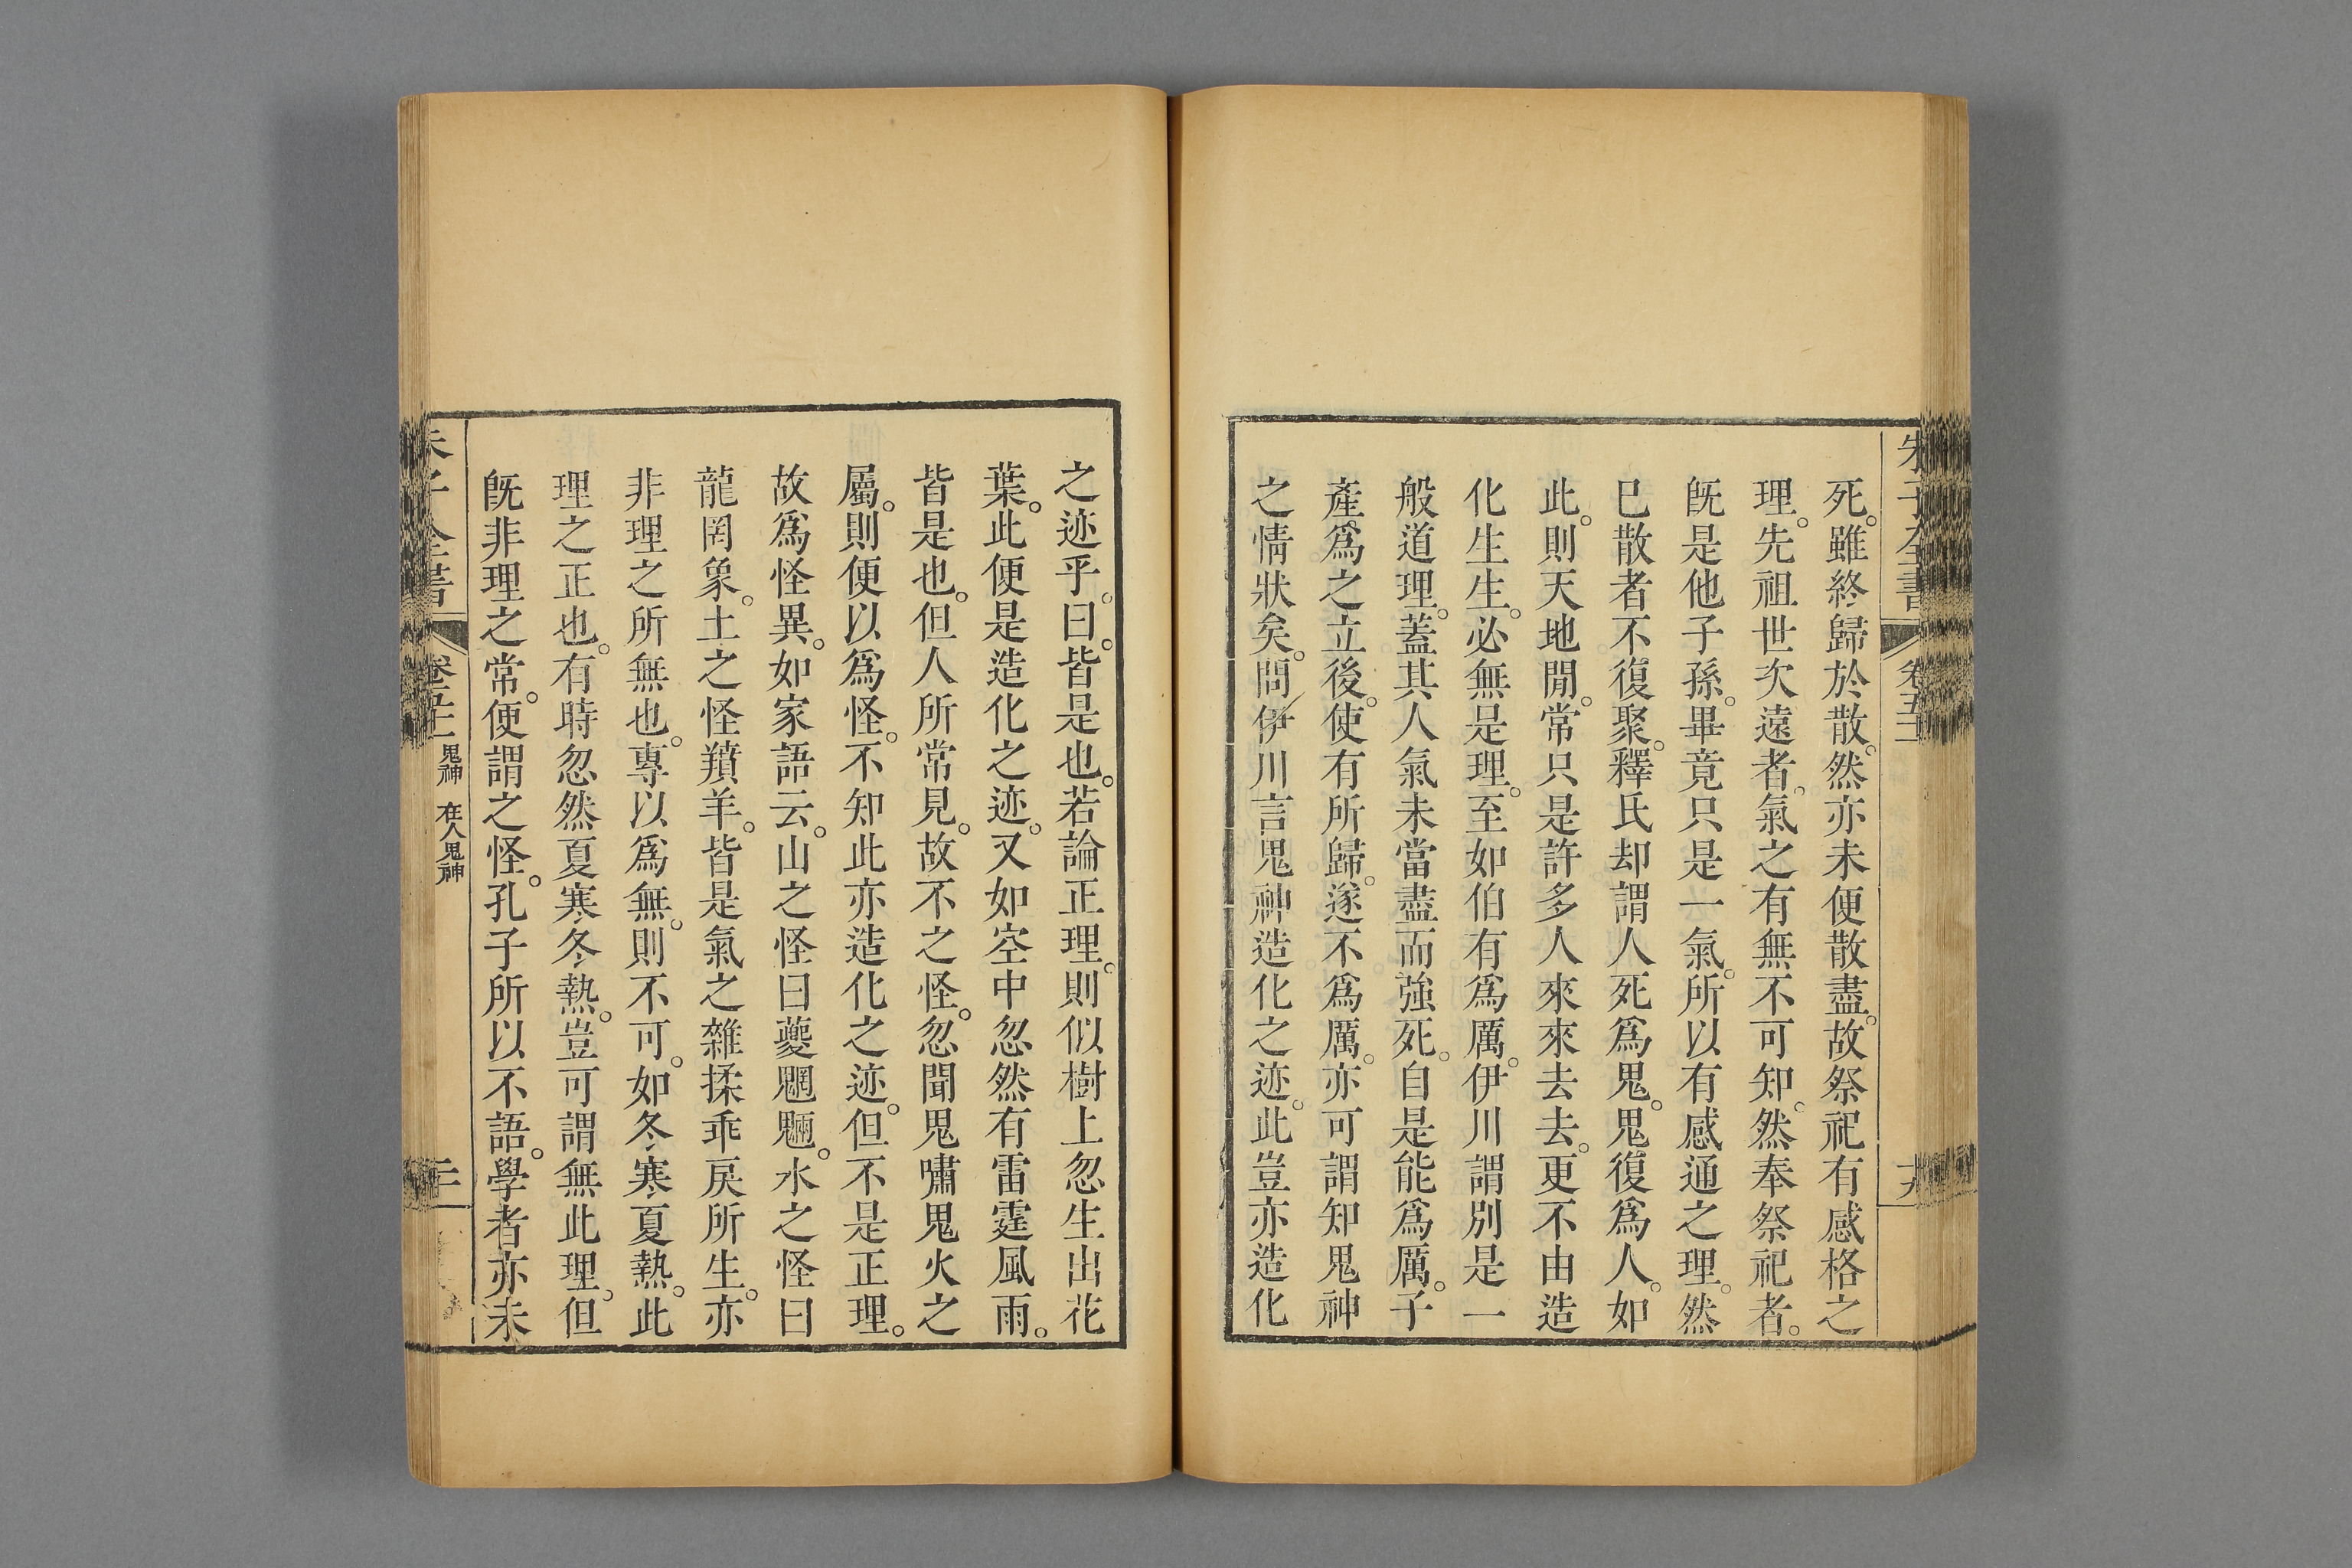 朱子全書 卷五十一 十九
死。雖終歸於散。然亦未便散盡。故祭祀有感格之
理。先祖世次遠者。氣之有無不可知。然奉祭祀者。
旣是他子孫。畢竟只是一氣。所以有感通之理。然
已散者不復聚。釋氏却謂人死爲鬼。鬼復爲人。如
此。則天地閒。常只是許多人來來去去。更不由造
化生生。必無是理。至如伯有爲厲。伊川謂別是一
般道理。蓋其人氣未當盡而強死。自是能爲厲。子
產爲之立後。使有所歸。遂不爲厲。亦可謂知鬼神
之情狀矣。問伊川言鬼神造化之迹。此豈亦造化
之迹乎。曰。皆是也。若論正理。則似樹上忽生出花
葉。此便是造化之迹。又如空中忽然有雷霆風雨。
皆是也。但人所常見。故不之怪。忽聞鬼嘯鬼火之
屬。則便以爲怪。不知此亦造化之迹。但不是正理。
故爲怪異。如家語云。山之怪曰夔魍魎。水之怪曰
龍罔象。土之怪羵羊。皆是氣之雜揉乖戾所生。亦
非理之所無也。專以爲無。則不可。如冬寒夏熱。此
理之正也。有時忽然夏寒冬熱。豈可謂無此理。但
旣非理之常。便謂之怪。孔子所以不語。學者亦未
朱子全書 鬼神 在人鬼神